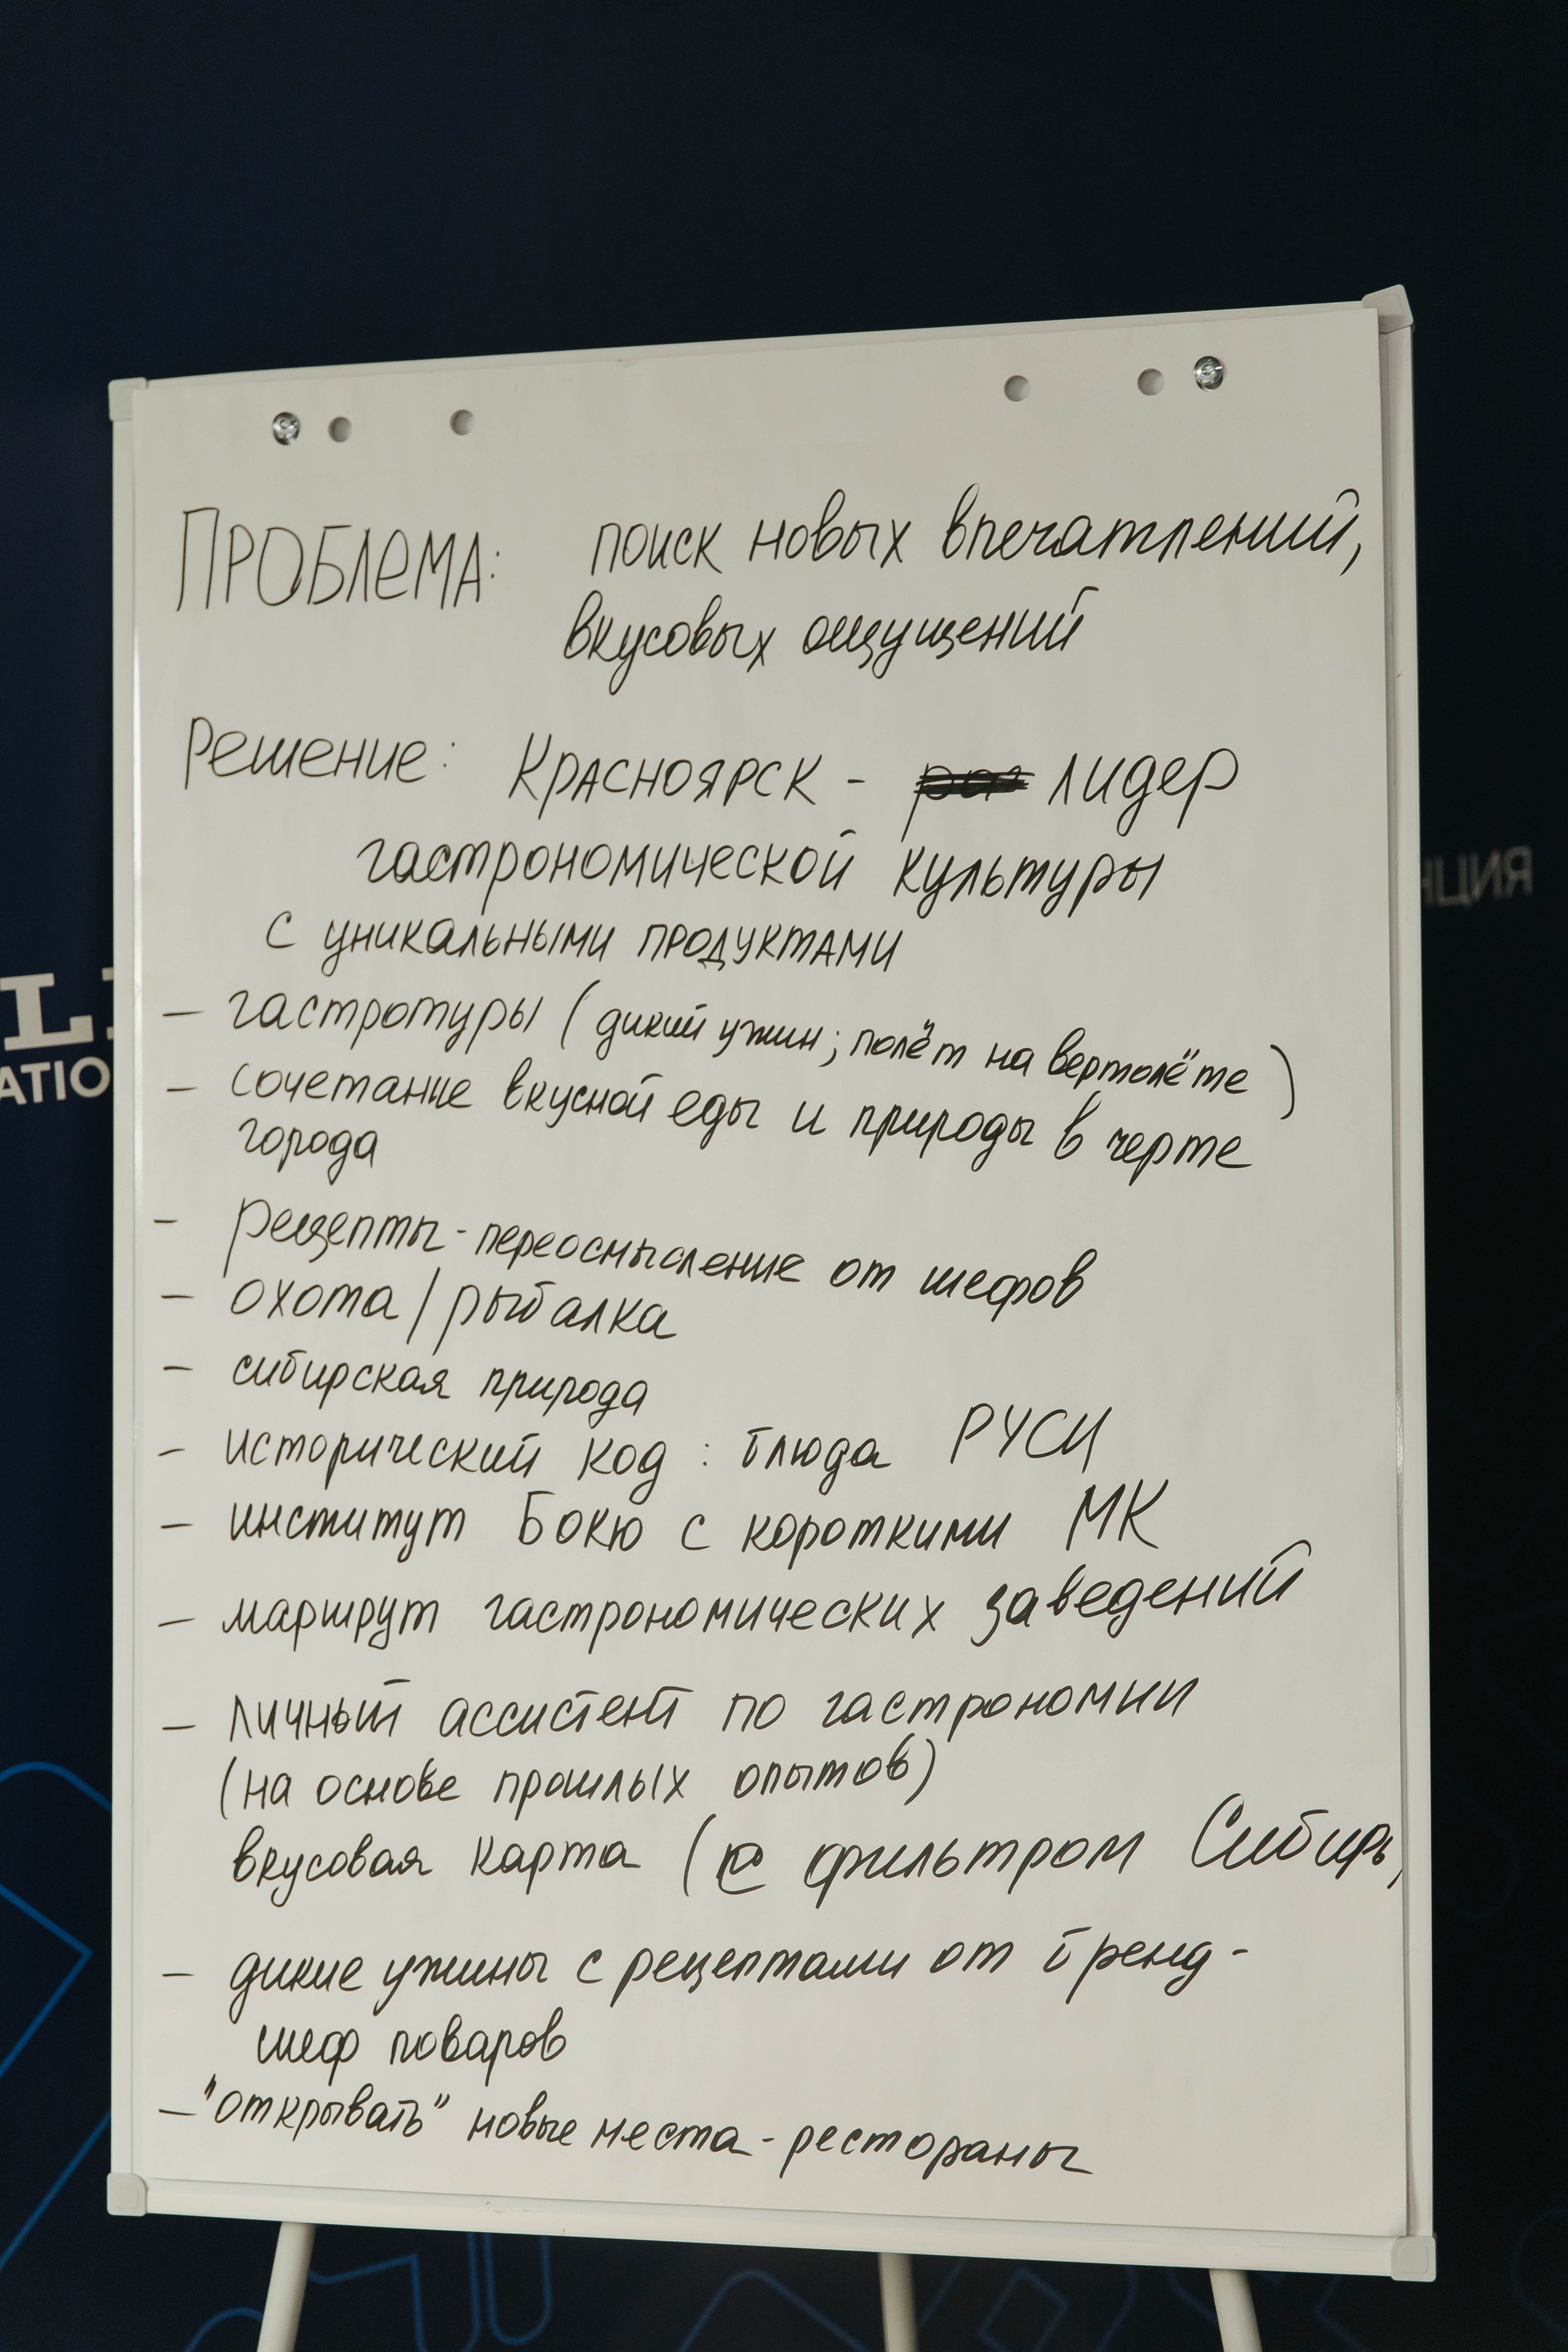 ПРОБЛЕМА: поиск новых впечатлений,
вкусовых ощущений
Решение: Красноярск - лидер
гастрономической культуры
с уникальными продуктами
– гастротуры (дикий ужин; полёт на вертолёте)
– сочетание вкусной еды и природы в черте
города
- рецепты-переосмысление от шефов
– охота/рыбалка
– сибирская природа
– исторический код: блюда РУСИ
– институт Бокю с короткими МК
– маршрут гастрономических заведений
– личный ассистент по гастрономии
(на основе прошлых опытов)
вкусовая карта (с фильтром Сибирь)
– дикие ужины с рецептами от бренд-
шеф поваров
– "открывать" новые места-рестораны
ATIO
ЦИЯ